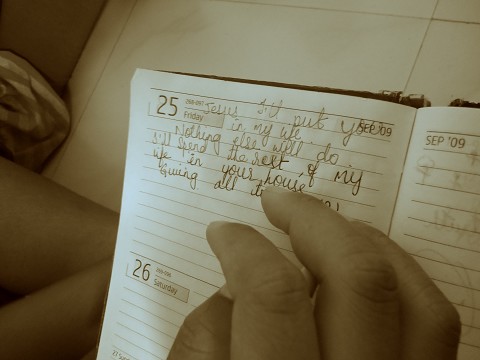 25 268-097 Jesus I'd put you
Friday in my life. SEP '09
Nothing else will do.
I'll spend the rest of my
life in your house
Giving all
SEP '09
26
Saturday